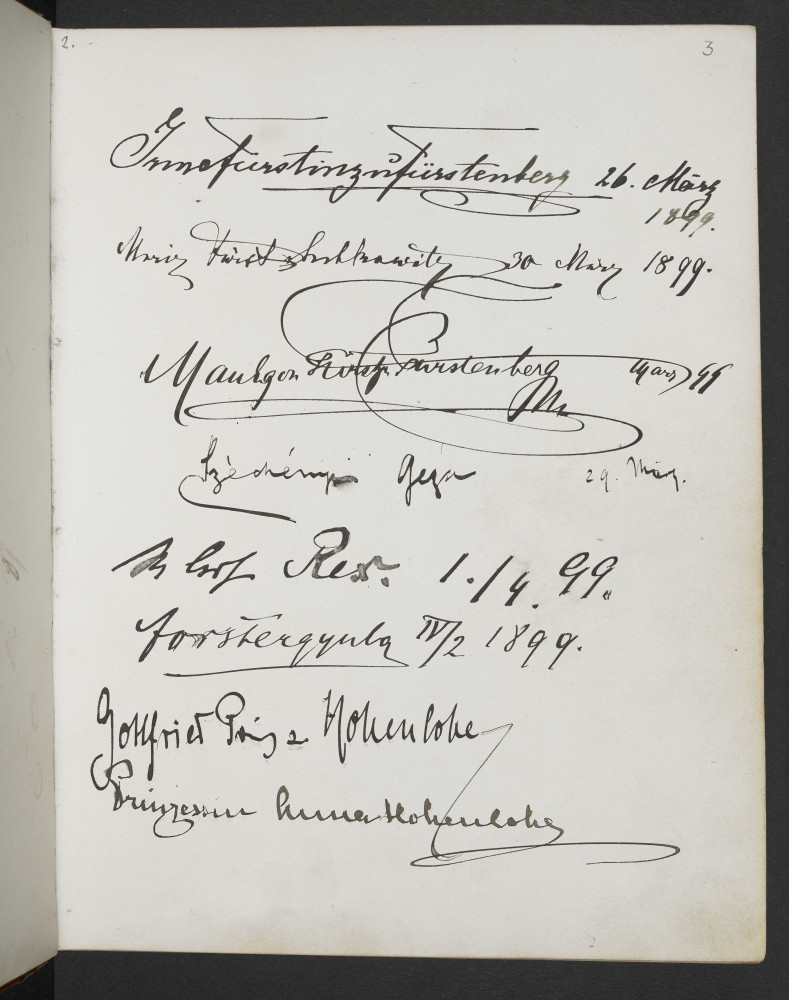 2.
3
Irma Fürstin zu Fürstenberg 26. März
1899.
Moriz Fürst Lobkowitz 30 März 1899.
Fürst Fürstenberg März 99
Széchényi Géza 29. März.
1./4. 99.
Forster Gyula IV/2 1899.
Gottfried Prinz Hohenlohe
Prinzessin Anna Hohenlohe